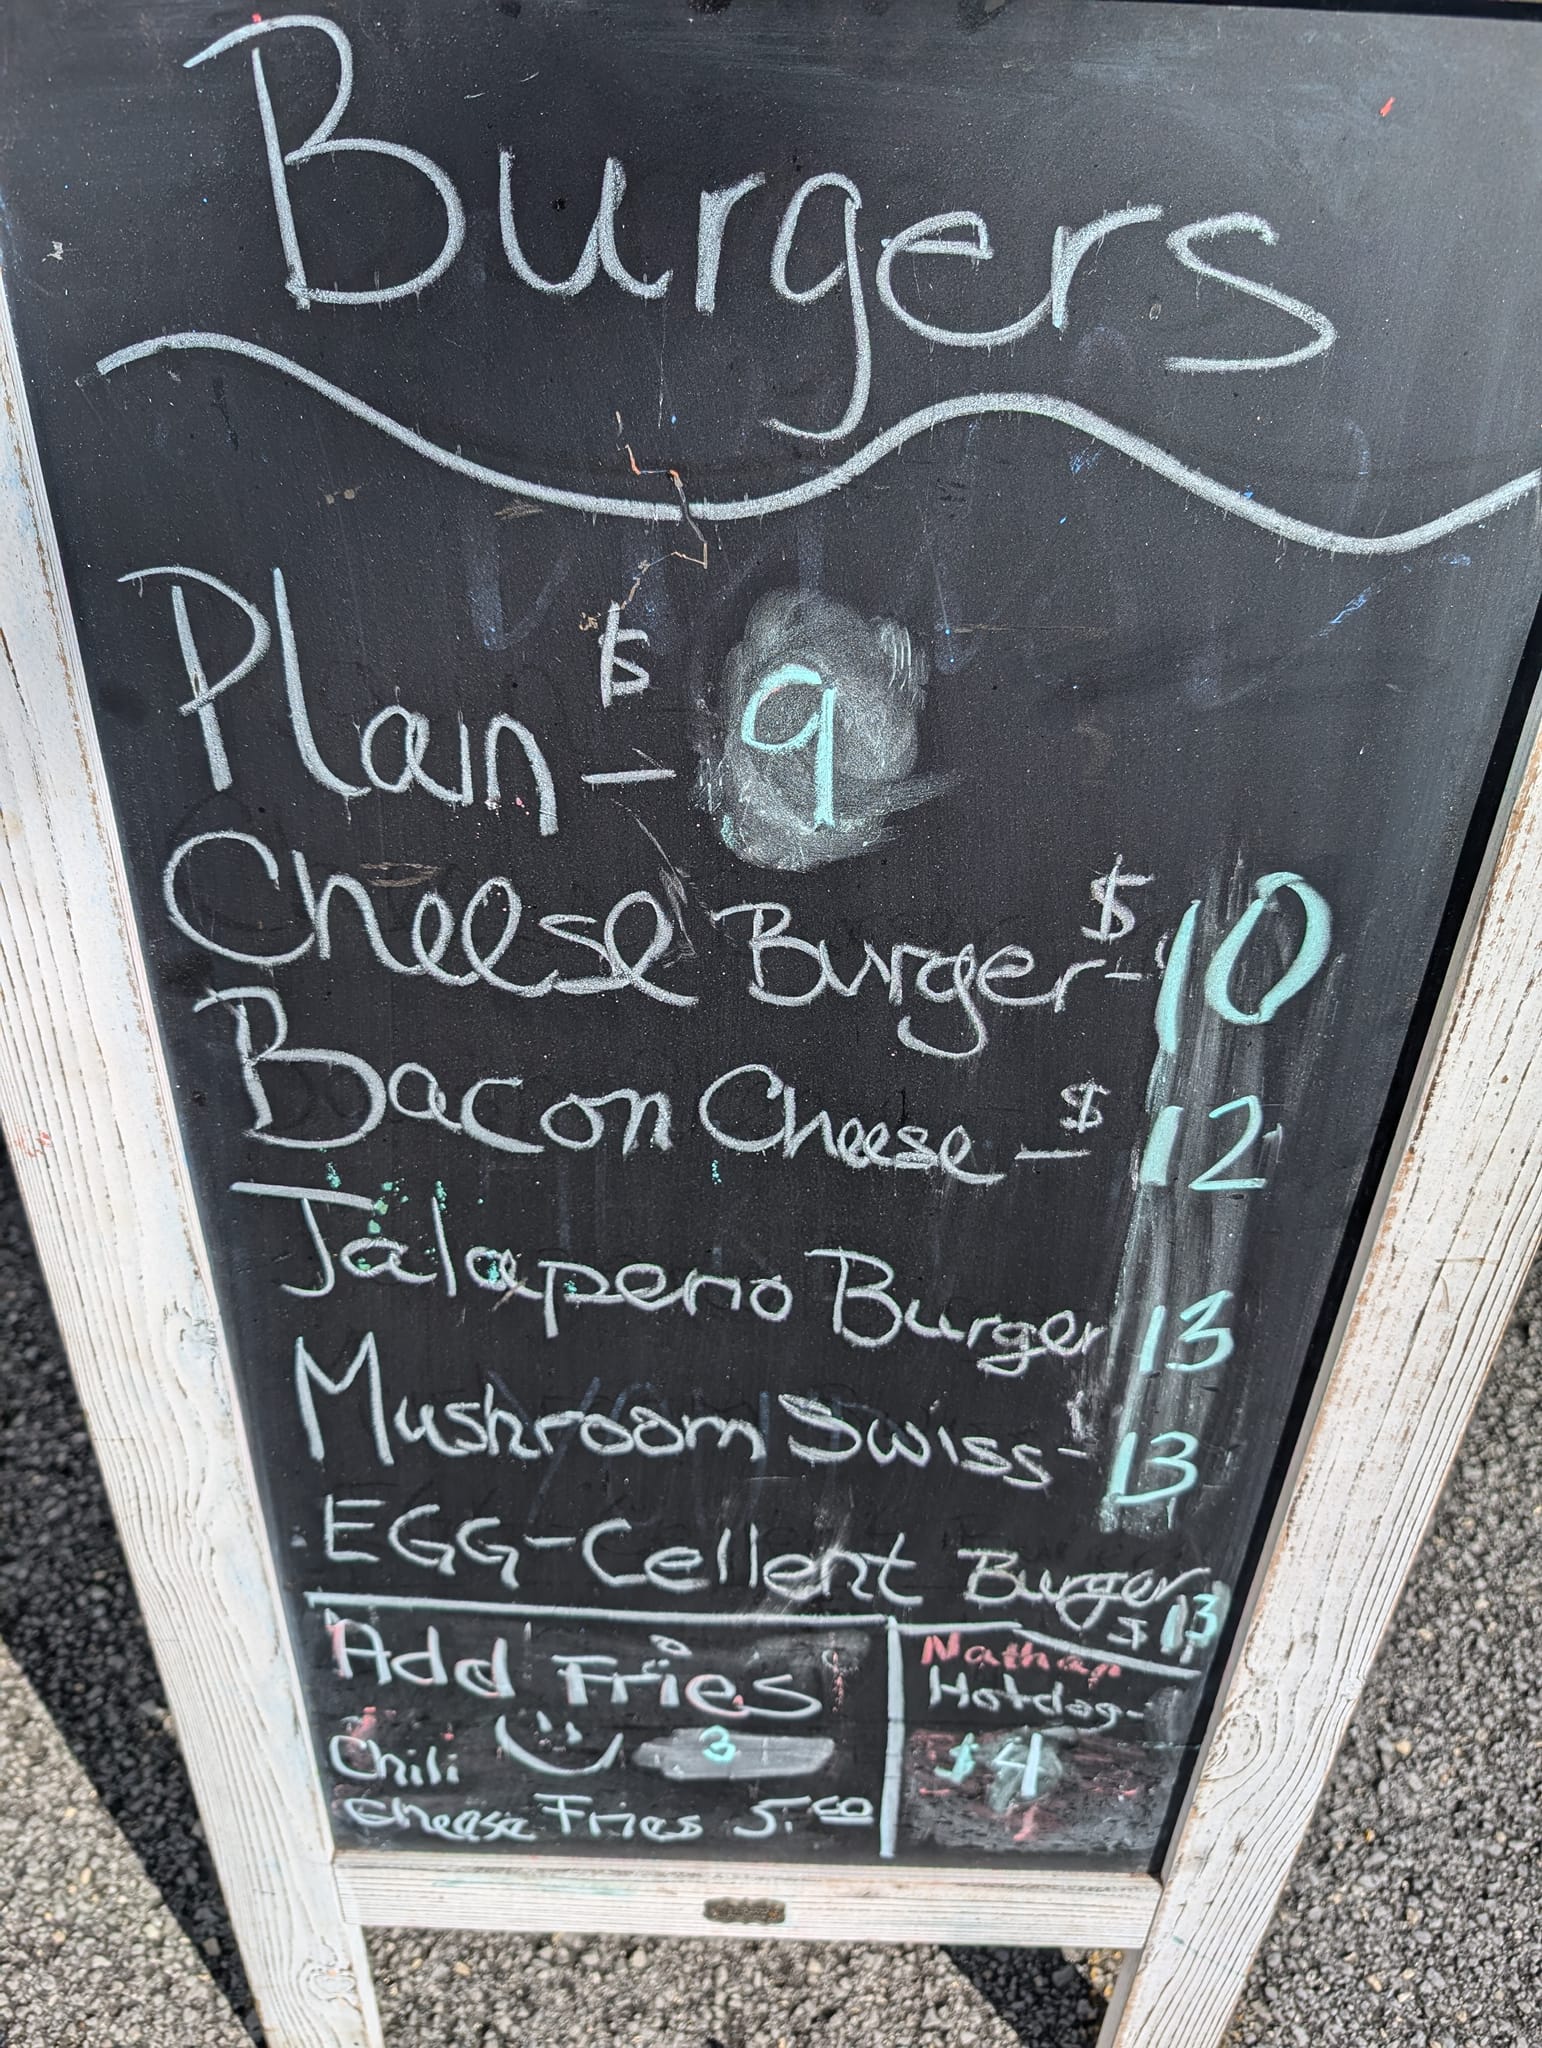 Burgers
Plain - $ 9
Cheese Burger - $ 10
Bacon Cheese - $ 12
Jalapeno Burger 13
Mushroom Swiss - 13
EGG-Cellent Burger
$ 13
Add Fries
3
Chili
Cheese Fries 5.50
Nathan
Hotdog -
$4